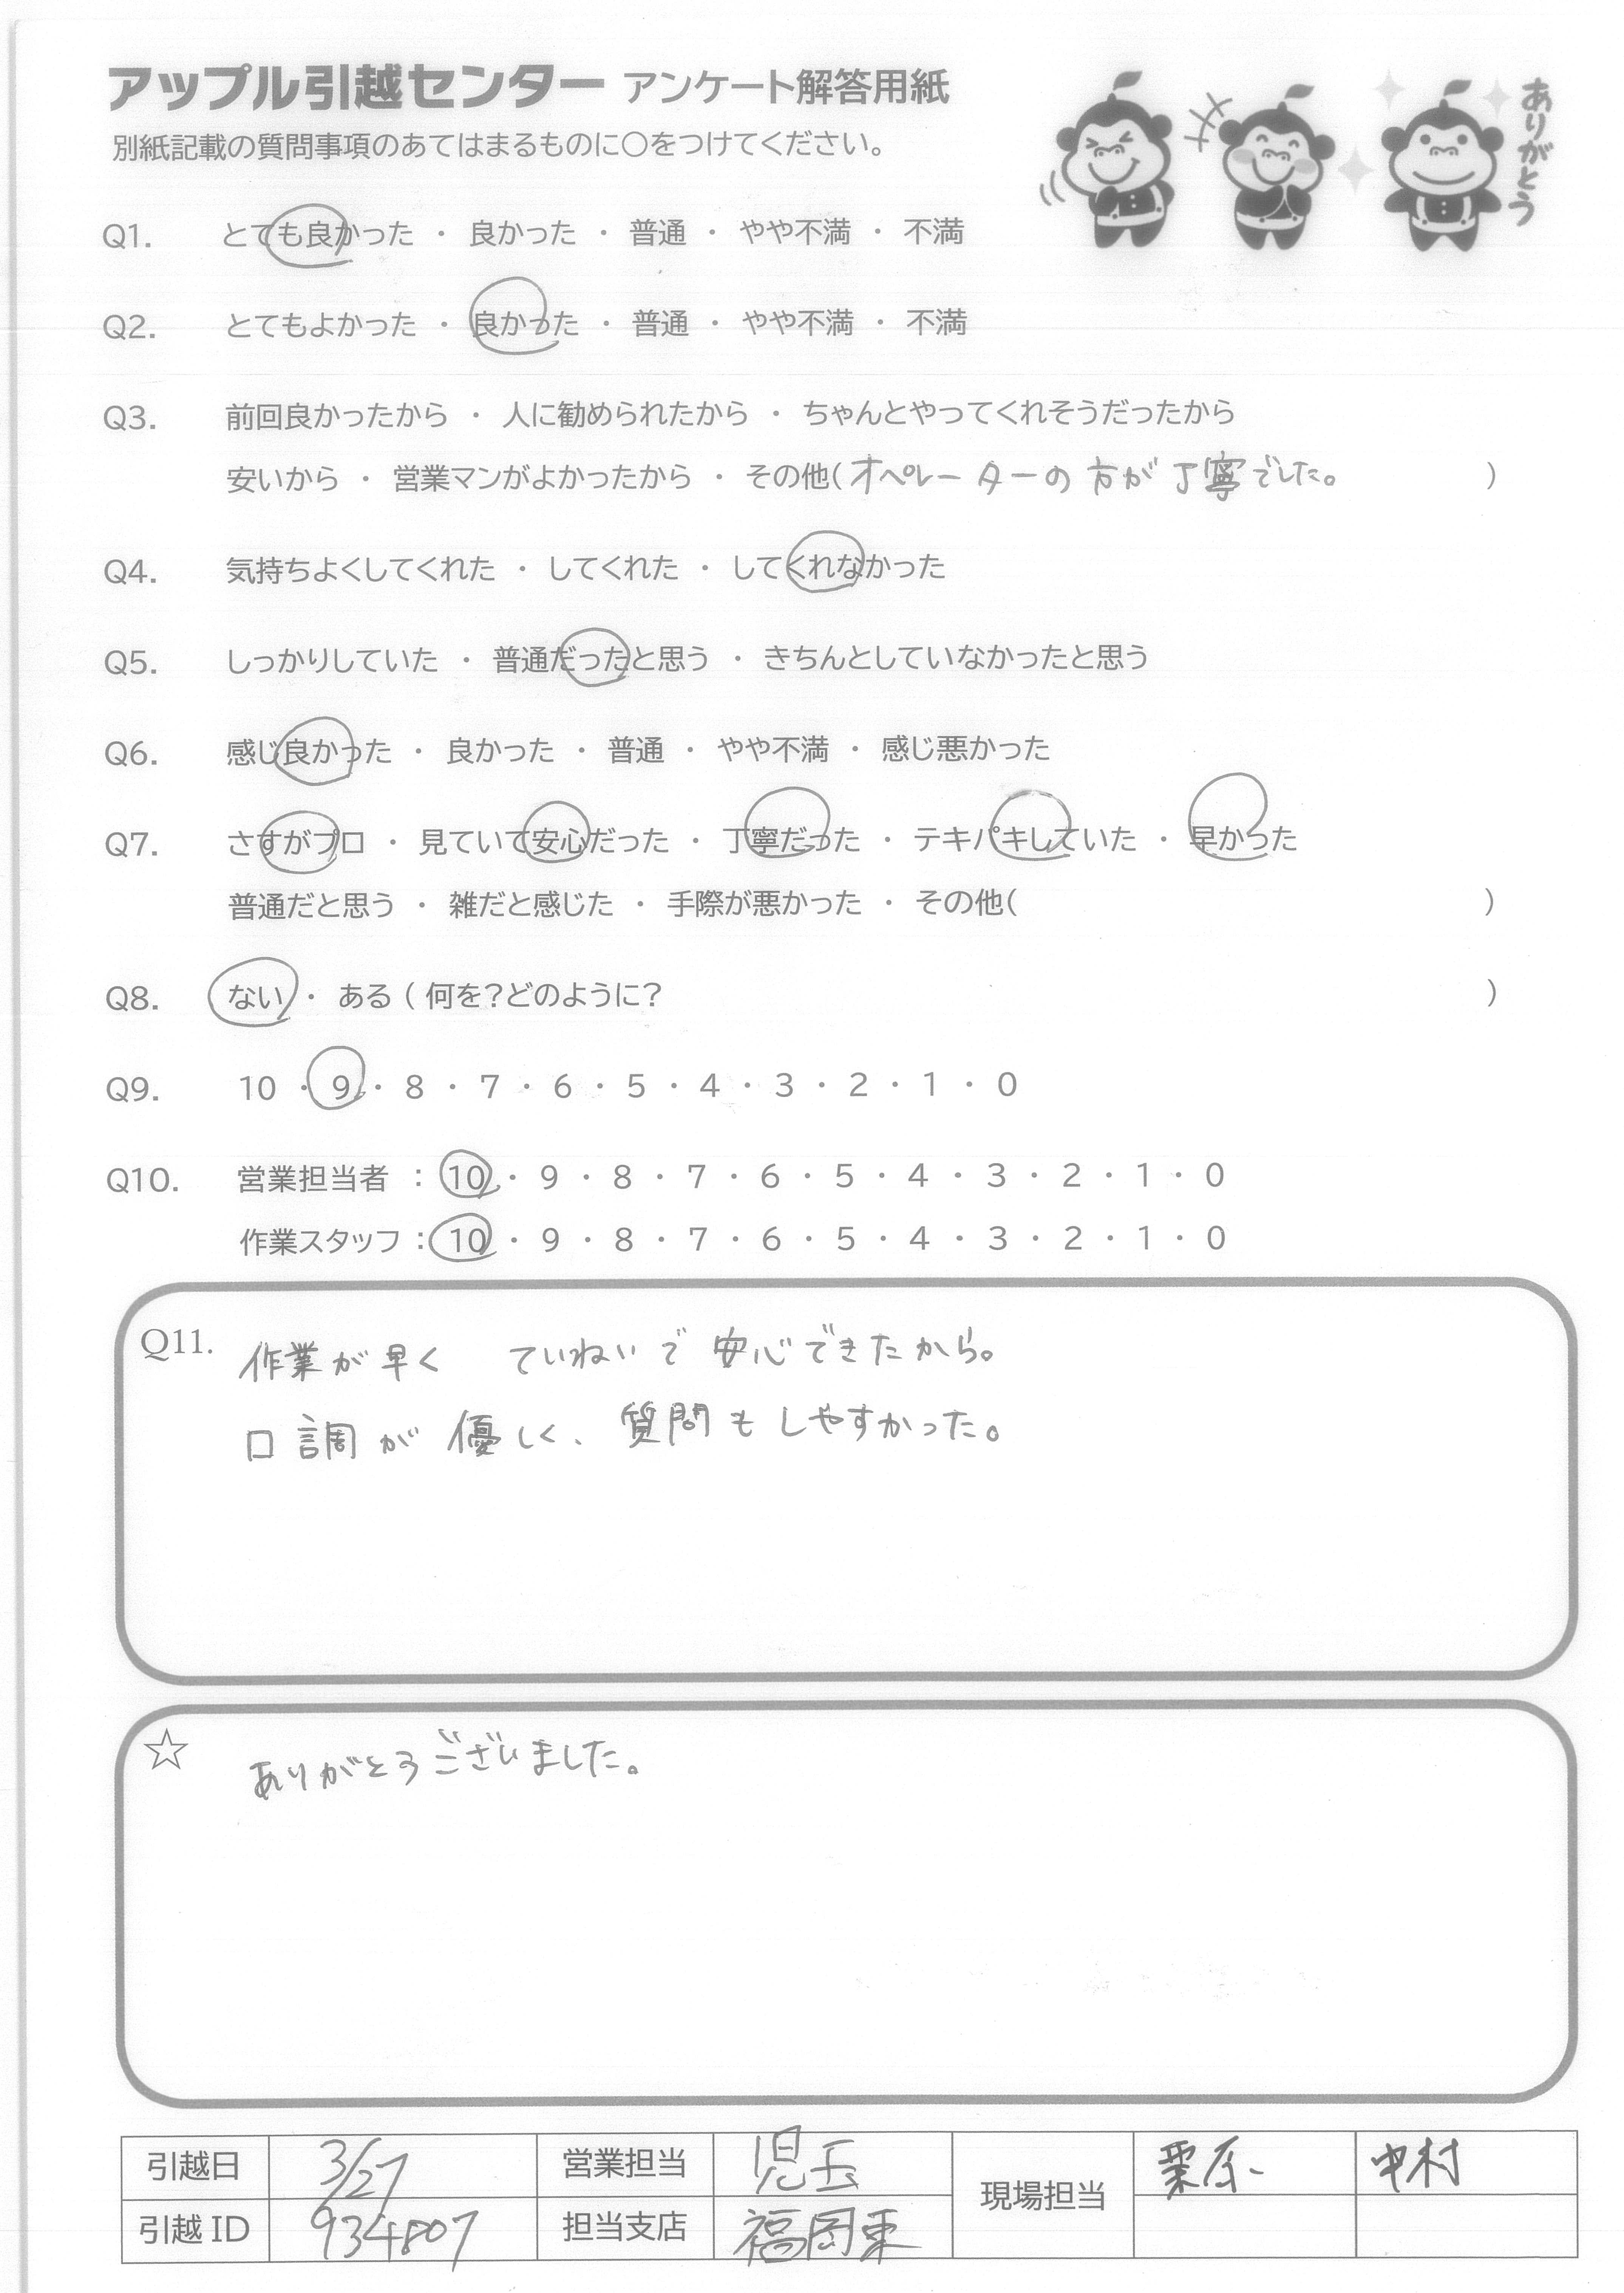 アップル引越センター アンケート解答用紙
ありがとう
別紙記載の質問事項のあてはまるものに○をつけてください。
Q1. とても良かった ・ 良かった ・ 普通 ・ やや不満 ・ 不満
Q2. とてもよかった ・ 良かった ・ 普通 ・ やや不満 ・ 不満
Q3. 前回良かったから ・ 人に勧められたから ・ ちゃんとやってくれそうだったから
安いから ・ 営業マンがよかったから ・ その他(オペレーターの方が丁寧でした。 )
Q4. 気持ちよくしてくれた ・ してくれた ・ してくれなかった
Q5. しっかりしていた ・ 普通だったと思う ・ きちんとしていなかったと思う
Q6. 感じ良かった ・ 良かった ・ 普通 ・ やや不満 ・ 感じ悪かった
Q7. さすがプロ ・ 見ていて安心だった ・ 丁寧だった ・ テキパキしていた ・ 早かった
普通だと思う ・ 雑だと感じた ・ 手際が悪かった ・ その他( )
Q8. ない ・ ある ( 何を?どのように? )
Q9. 10 ・ 9 ・ 8 ・ 7 ・ 6 ・ 5 ・ 4 ・ 3 ・ 2 ・ 1 ・ 0
Q10. 営業担当者 : 10 ・ 9 ・ 8 ・ 7 ・ 6 ・ 5 ・ 4 ・ 3 ・ 2 ・ 1 ・ 0
作業スタッフ : 10 ・ 9 ・ 8 ・ 7 ・ 6 ・ 5 ・ 4 ・ 3 ・ 2 ・ 1 ・ 0
Q11. 作業が早く ていねいで安心できたから。
口調が優しく、質問もしやすかった。
☆ ありがとうございました。
引越日 3/27 営業担当 児玉 現場担当 栗原 中村
引越ID 934807 担当支店 福岡東